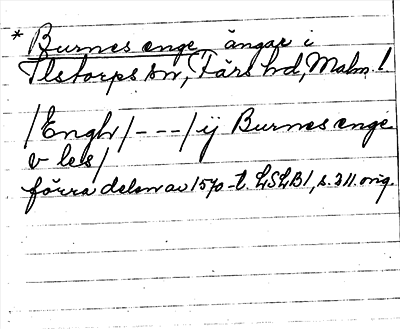 * Burnes enge ängar i
Ilstorps sn, Färs hd, Malm. l
/Engh/ - - - / ij Burnes enge
v les/
förra delen av 1570-t. LSLB1, s. 311. orig.